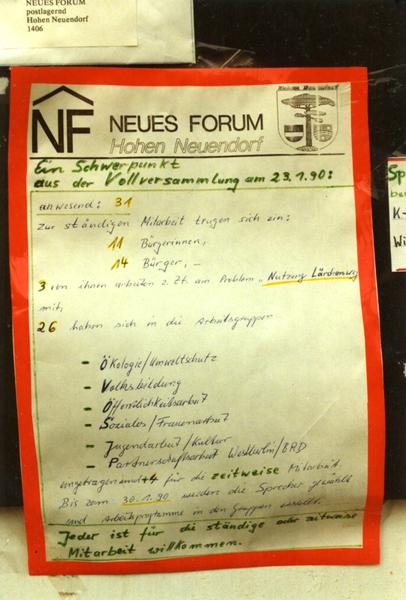 NEUES FORUM
postlagernd
Hohen Neuendorf
1406
NF NEUES FORUM
Hohen Neuendorf
Ein Schwerpunkt
aus der Vollversammlung am 23.1.90:
anwesend: 31
Zur ständigen Mitarbeit trugen sich ein:
11 Bürgerinnen,
14 Bürger, –
3 von ihnen arbeiten z. Zt. am Problem „Nutzung Lärchenweg
mit,
26 haben sich in die Arbeitsgruppen
- Ökologie/Umweltschutz
- Volksbildung
- Öffentlichkeitsarbeit
- Soziales/Frauenarbeit
- Jugendarbeit/Kultur
- Partnerschaftsarbeit Westberlin/BRD
eingetragen und 4 für die zeitweise Mitarbeit.
Bis zum 30.1.90 werden die Sprecher gewählt
und Arbeitsprogramme in den Gruppen erstellt.
Jeder ist für die ständige oder zeitweise
Mitarbeit willkommen.
Sp
K-
Wi